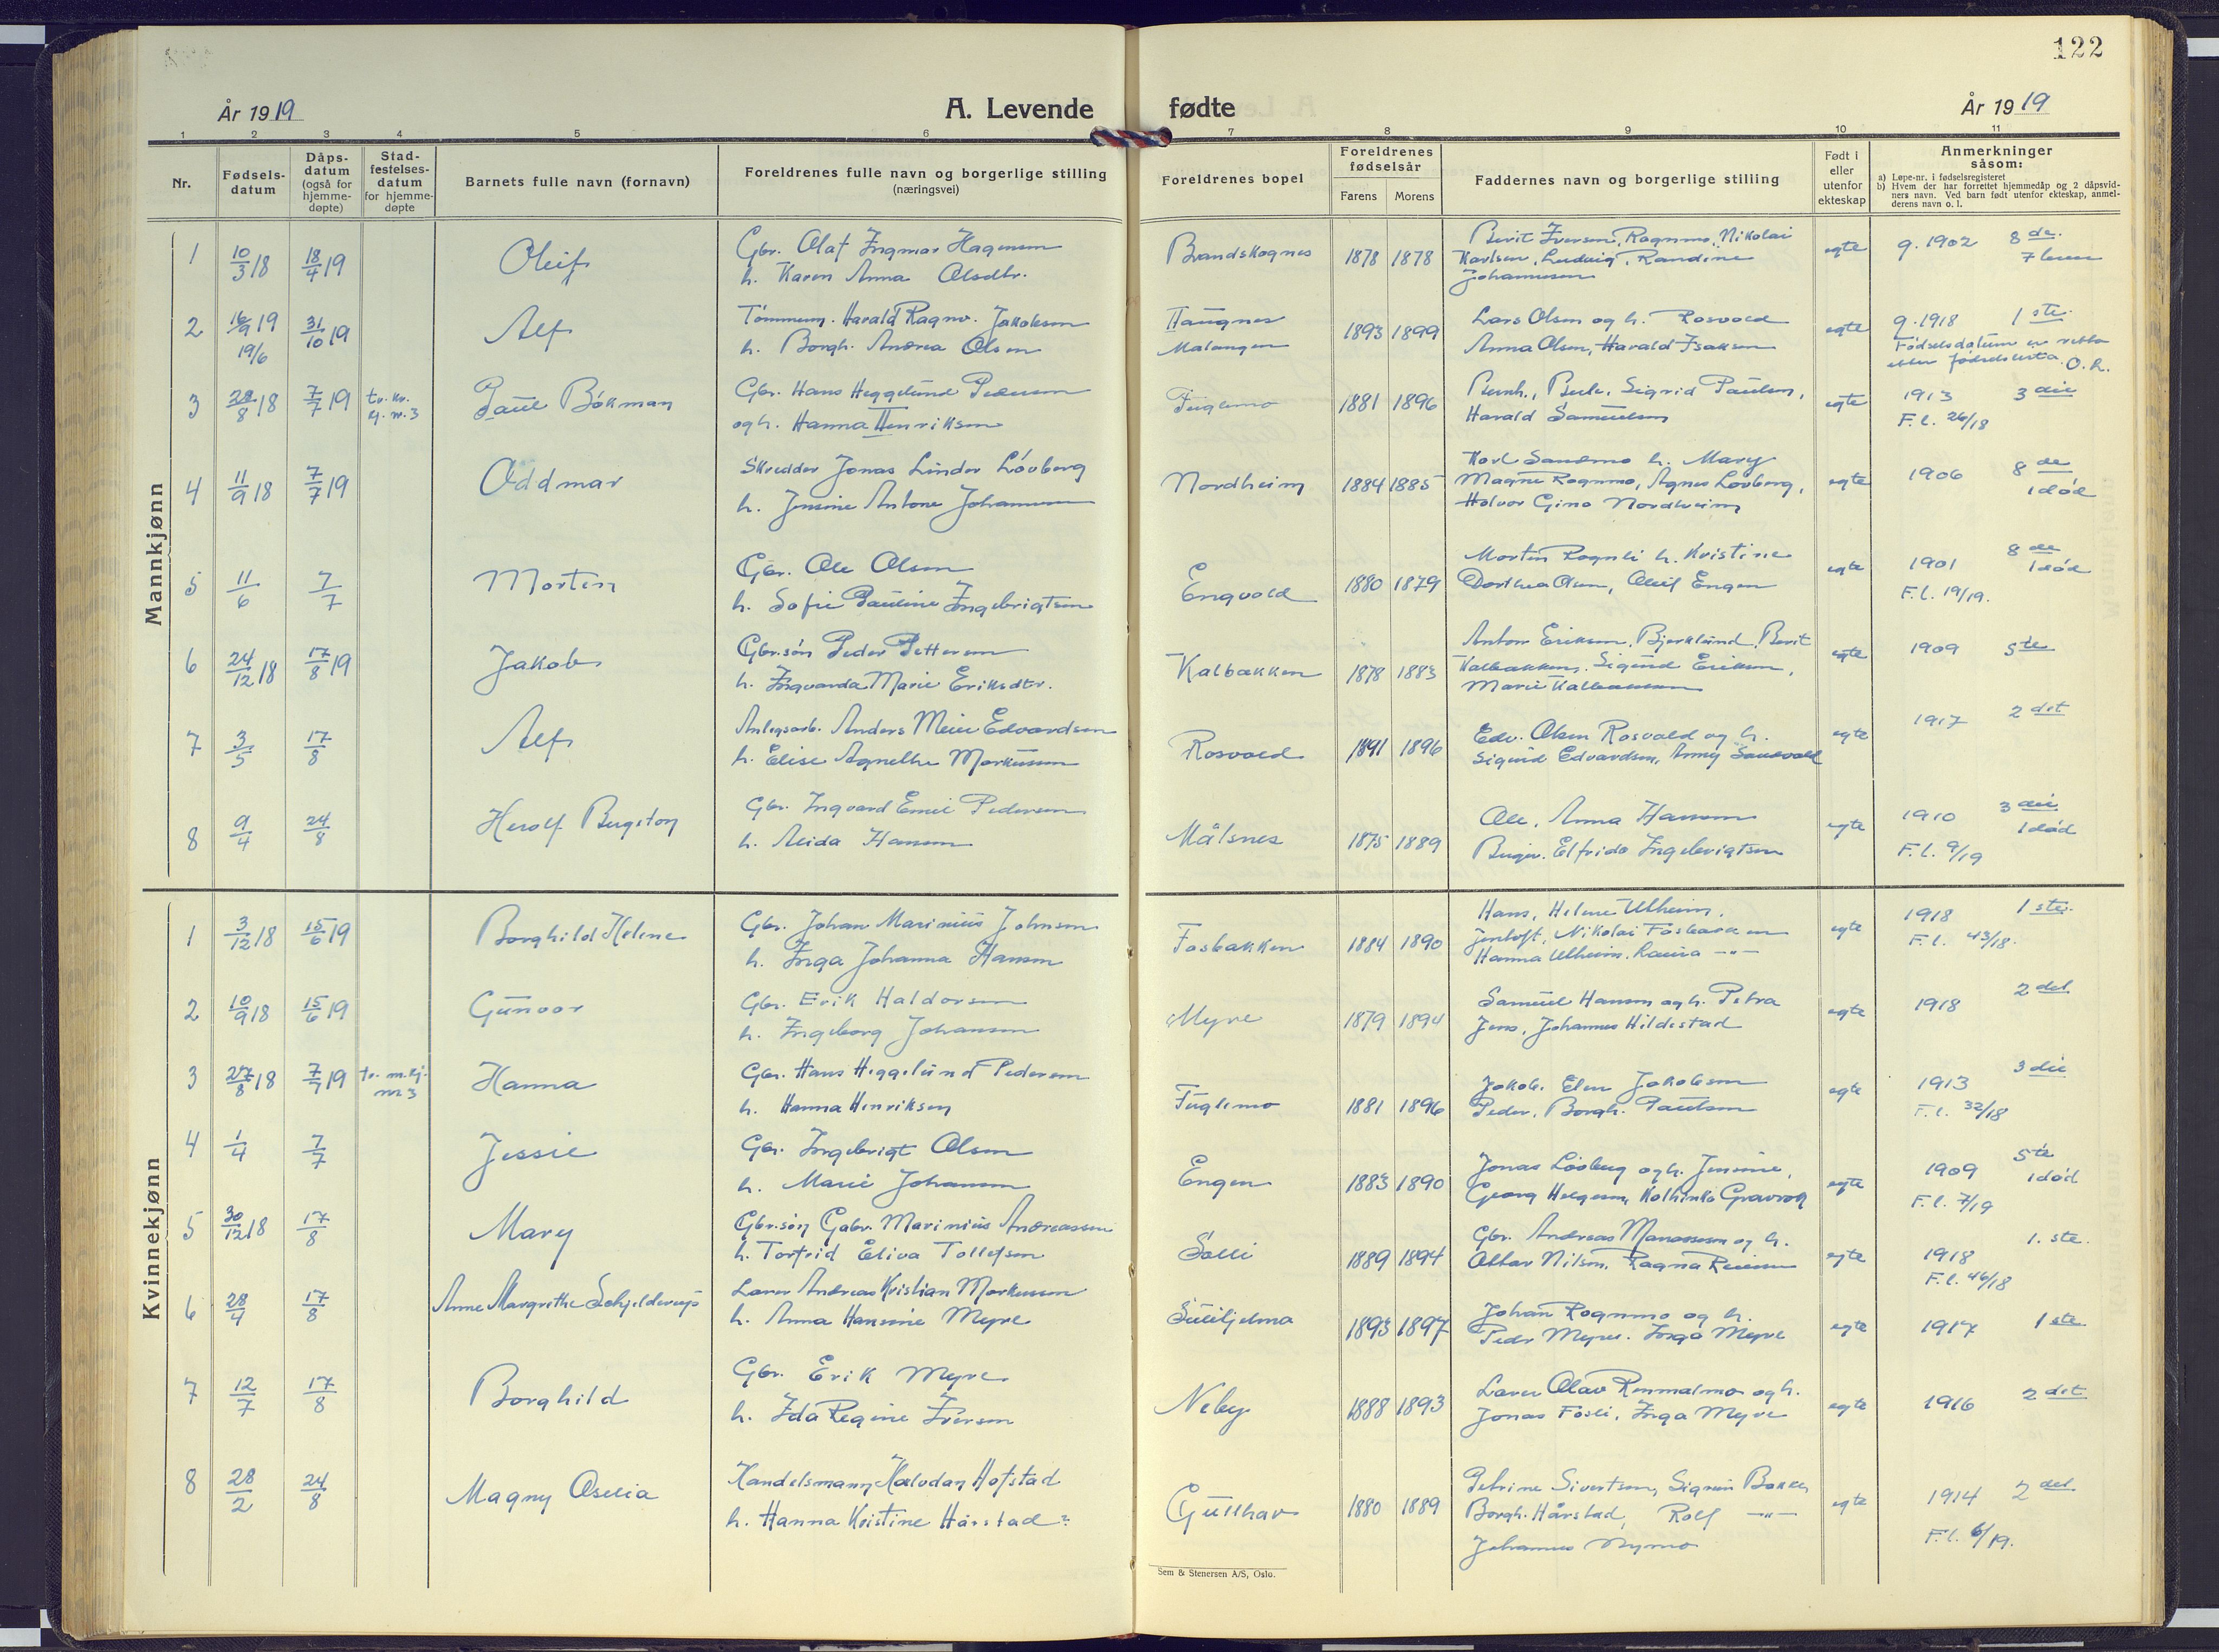 122
År 1919
A. Levende fødte
År 1919
1 2 3 4 5 6 7 8 9 10 11
Nr.
Fødselsdatum
Dåpsdatum (også for hjemmedøpte)
Stadfestelsesdatum for hjemmedøpte
Barnets fulle navn (fornavn)
Foreldrenes fulle navn og borgerlige stilling
(næringsvei)
Foreldrenes bopel
Foreldrenes fødselsår
Farens Morens
Faddernes navn og borgerlige stilling
Født i eller utenfor ekteskap
Anmerkninger såsom:
a) Løpe-nr. i fødselsregisteret
b) Hvem der har forrettet hjemmedåp og 2 dåpsvidners navn. Ved barn født utenfor ekteskap, anmelderens navn o. l.
Mannkjønn
1 10/3 18 18/4 19 Oleif
Gbr. Olaf Ingmar Hagensen
h. Karen Anna Olsdtr.
Brandskognes 1878 1878
Berit Iversen, Ragnmo, Nikolai
Karlsen, Ludvig, Randine
Johannesen
egte g. 1902 8 de.
7 leven
2 16/9 19 19/6 31/10 19 Alf
Tømmerm. Harald Ragnv. Jakobsen
h. Borgh. Andrea Olsen
Haugnes
Malangen
1893 1899
Lars Olsen og h. Rosvold
Anna Olsen, Harald Isaksen
egte g. 1918 1 ste.
Fødselsdatum er rettet
efter fødselslista. O.h.
3 28/8 18 7/7 19 tv. kv. kj. nr. 3 Paul Bökman
Gbr. Hans Heggelund Pedersen
og h. Hanna Henriksen
Fuglemo 1881 1896
Bernh., Sigrid Paulsen,
Harald Samuelsen
egte 1913 3 die
F.l. 26/18
4 11/9 18 7/7 19 Oddmar
Skredder Jonas Linder Lövberg
h. Jensine Antone Johannesen
Nordheim 1884 1885
Karl Sandmo h. Mary
Magne Rognmo, Agnes Lövberg,
Halvor Gino Nordheim
egte 1906 8 de
1 död
5 11/6 7/7 Morten
Gbr. Ole Olsen
h. Sofie Pauline Ingebrigtsen
Engvold 1880 1879
Morten Rognli h. Kristine
Dorthea Olsen, Oleif Engen
egte 1901 8 de
1 död
F.l. 19/19.
6 24/12 18 17/8 19 Jakob
Gbr.sön Peder Pettersen
h. Ingvarda Marie Eriksdtr.
Kalbakken 1878 1883
Anton Eriksen, Bjerklund, Berit
Kalbakken, Sigurd Eriksen,
Marie Kalbakken
egte 1909 5 te
7 3/5 17/8 Alf
Anlegsarb. Anders Meier Edvardsen
h. Elise Agnethe Markussen
Rosvold 1891 1896
Edv. Olsen Rosvold og h.
Sigurd Edvardsen, Anny Sandvold
egte 1917 2 det
8 9/4 24/8 Herolf Bergstog
Gbr. Ingvard Emil Pedersen
h. Alida Hansen
Målsnes 1875 1889
Ole, Anna Hansen
Birger. Elfrida Ingebrigtsen
egte 1910 3 die
1 död
F.l. 9/19
Kvinnekjønn
1 3/12 18 15/6 19 Borghild Helene
Gbr. Johan Marinius Johnsen
h. Inga Johanna Hansen
Fosbakken 1884 1890
Hans, Helene Ulheim,
Jentoft, Nikolai Fosbakken
Hanna Ulheim. Laura —"—
egte 1918 1 ste.
F.l. 43/18.
2 10/9 18 15/6 19 Gunvor
Gbr. Erik Haldorsen
h. Ingeborg Johansen
Myre 1879 1894
Samuel Hansen og h. Petra
Jens, Johannes Hildestad
egte 1918 2 det
3 27/8 18 7/7 19 tv. m. kj. nr 3 Hanna
Gbr. Hans Heggelund Pedersen
h. Hanna Henriksen
Fuglemo 1881 1896
Jakob. Elen Jakobsen
Peder, Borgh. Paulsen
egte 1913 3 die
F.l. 32/18
4 1/4 7/7 Jessie
Gbr. Ingebrigt Olsen
h. Marie Johansen
Engen 1883 1890
Jonas Lövberg og h. Jensine,
Georg Helgesen, Kathinka Gravrog
egte 1909 5 te
1 död
F.l. 7/19
5 30/12 18 17/8 Mary
Gbr.sön Gabr. Marinius Andreassen
h. Torfrid Eliva Tollefsen
Solli 1889 1894
Gbr. Andreas Manassesen og h.
Ottar Nilsen, Ragna Reiersen
egte 1918 1. ste.
F.l. 46/18
6 28/4 17/8 Anne Margrethe Schjelderup
Lærer Andreas Kristian Markussen
h. Anna Hansine Myre
Sulihjelma 1893 1897
Johan Rognmo og h.
Peder Myre. Inga Myre
egte 1917 1 ste
7 12/7 17/8 Borghild
Gbr. Erik Myre
h. Ida Regine Iversen
Neby 1888 1893
Lærer Olav Renmælmo og h.
Jonas Fosli, Inga Myre
egte 1916 2 det
8 28/2 24/8 Magny Oselia
Handelsmann Halvdan Hofstad
h. Hanna Kristine Hårstad
Gullhav 1880 1889
Petrine Sivertsen, Signin Bakke
Borgh. Hårstad, Rolf —"—
Johannes Nymo
egte 1914 2 det
F.l. 6/19.
Sem & Stenersen A/S, Oslo.